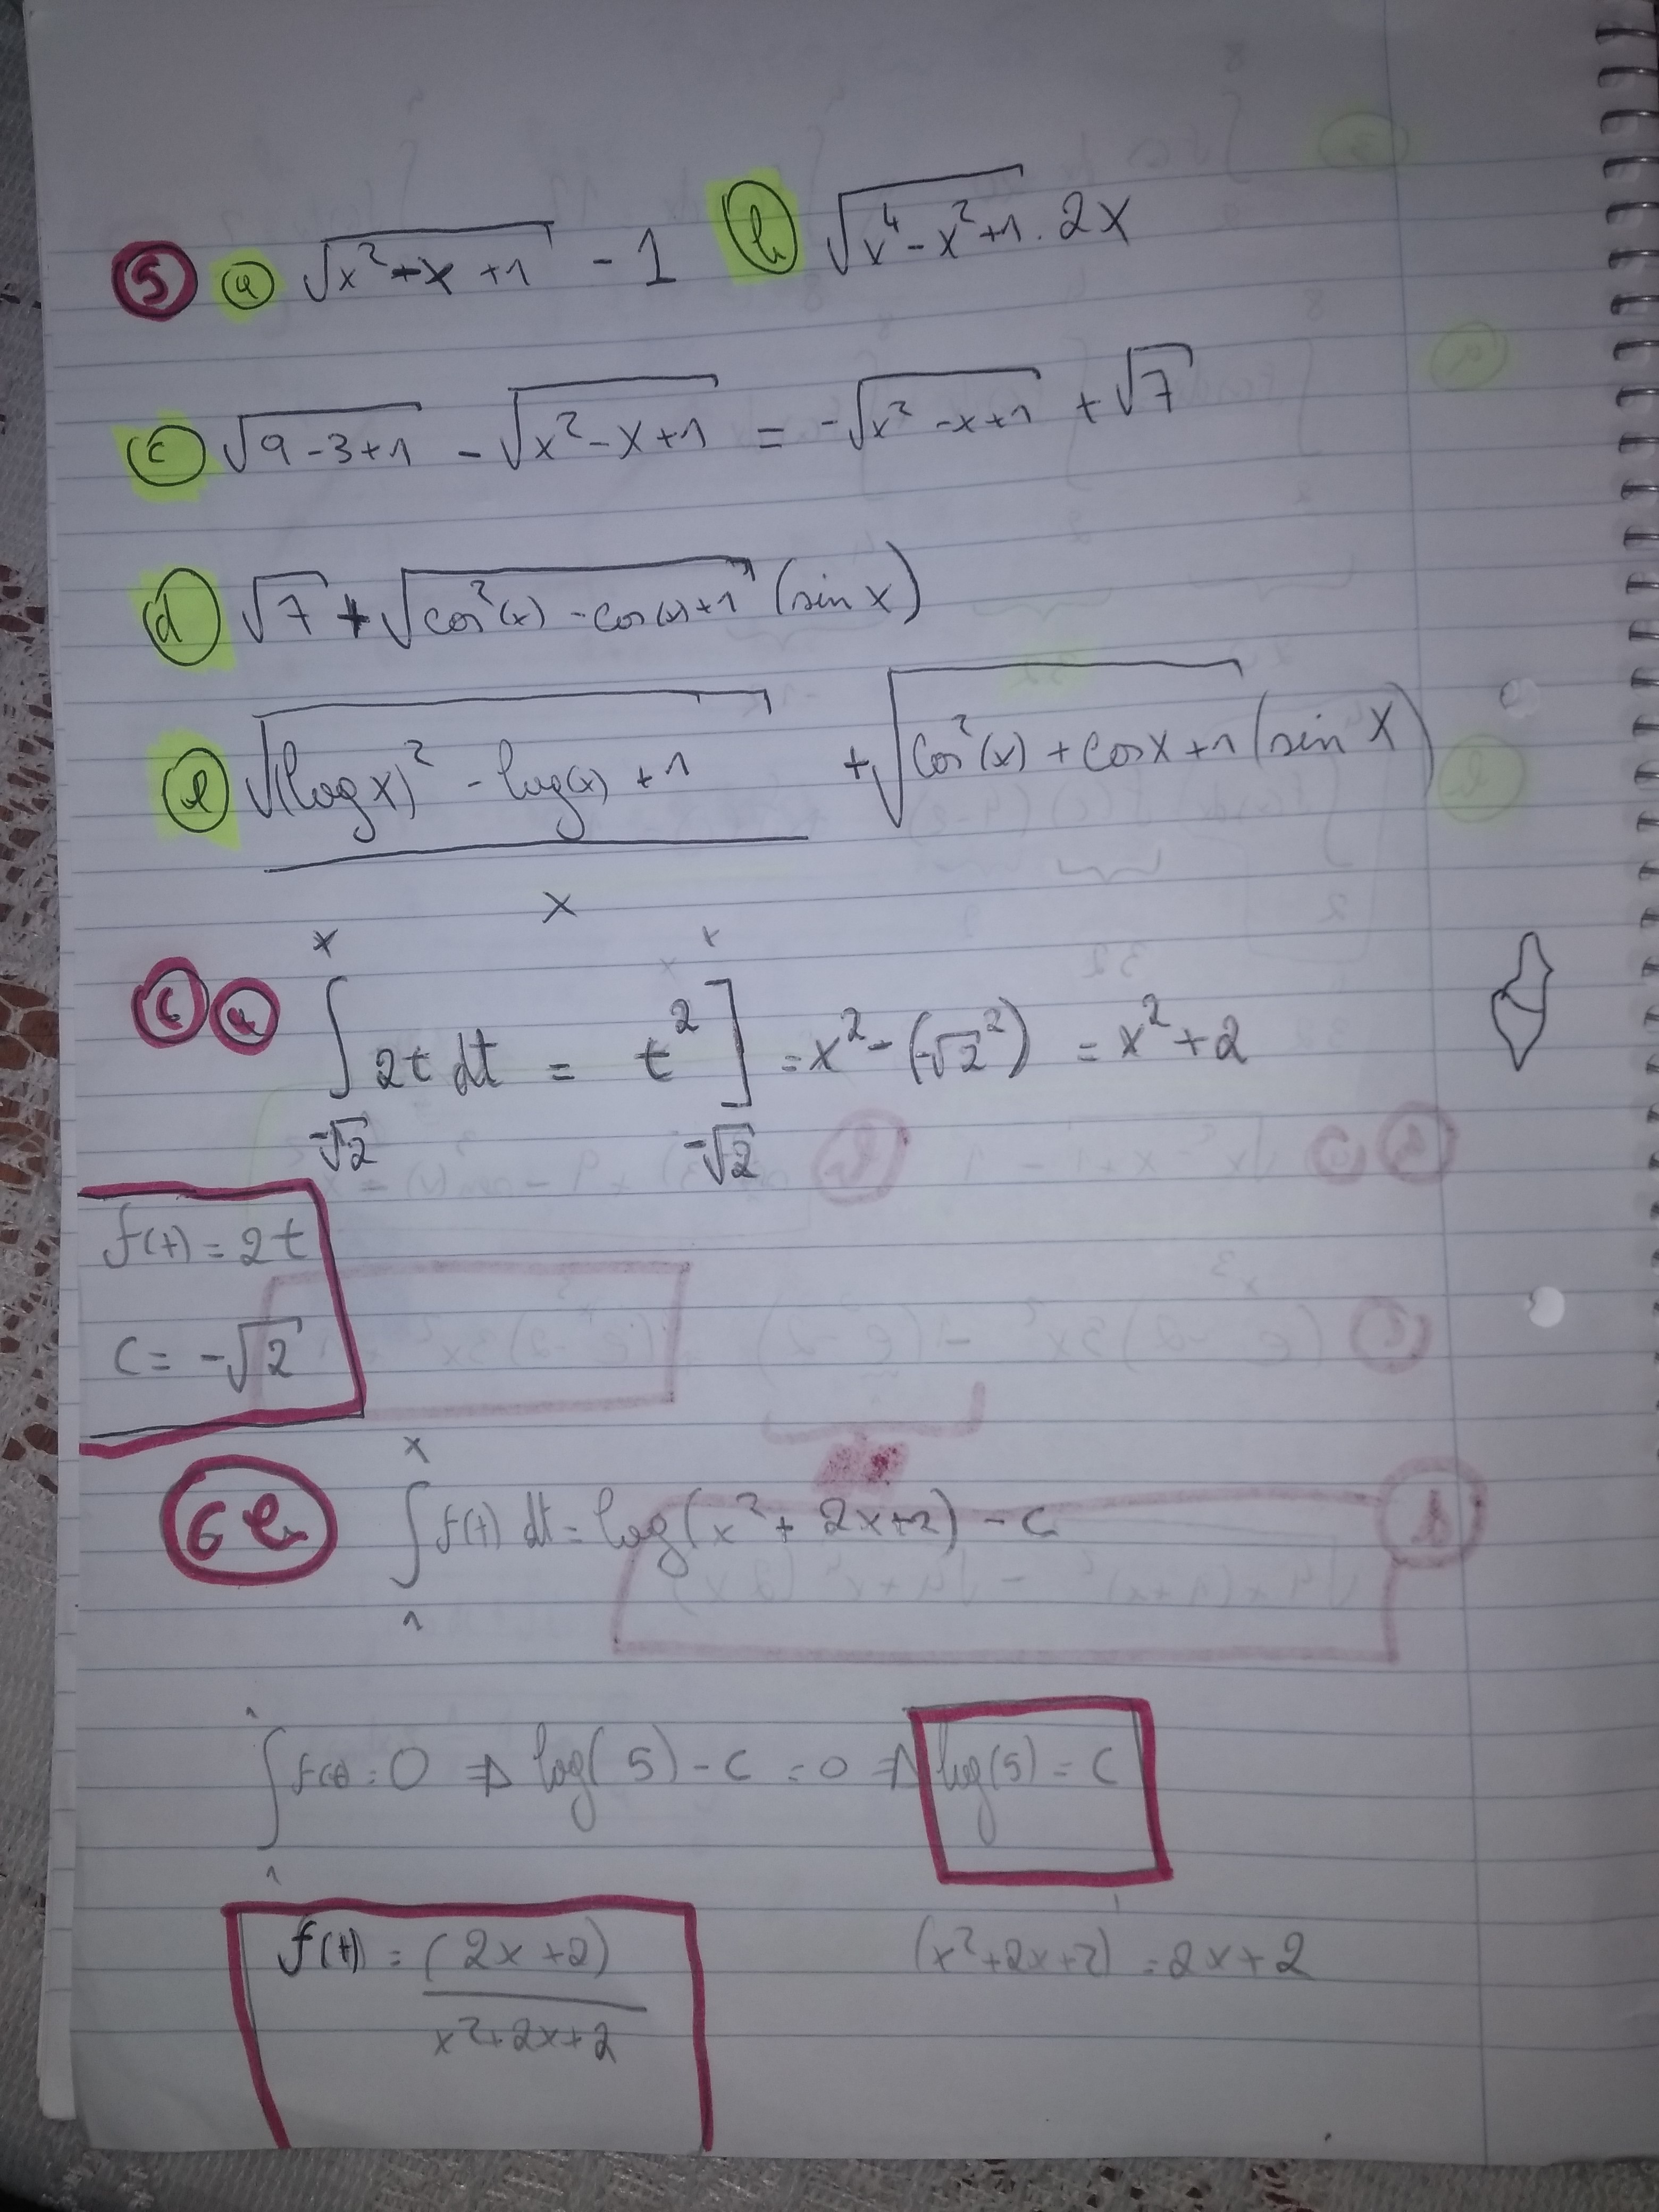 5 a √(x²-x+1) - 1 b √(x⁴-x²+1) · 2x
c √(9-3+1) - √(x²-x+1) = -√(x²-x+1) + √7
d √7 + √(cos²(x) - cos(x)+1) (sin x)
e √((log x)² - log(x) + 1) / x + √(cos²(x) + cos x + 1) (sin x)
6 a ∫_{-√2}^{x} 2t dt = t²]_{-√2}^{x} = x² - (-√2²) = x² + 2
f(t) = 2t
c = -√2
6 b ∫_{1}^{x} f(t) dt = log(x² + 2x+2) - c
∫_{1}^{1} f(t) = 0 ⇒ log(5) - c = 0 ⇒ log(5) = c
f(t) = (2x+2) / x²+2x+2 (x²+2x+2)' = 2x+2